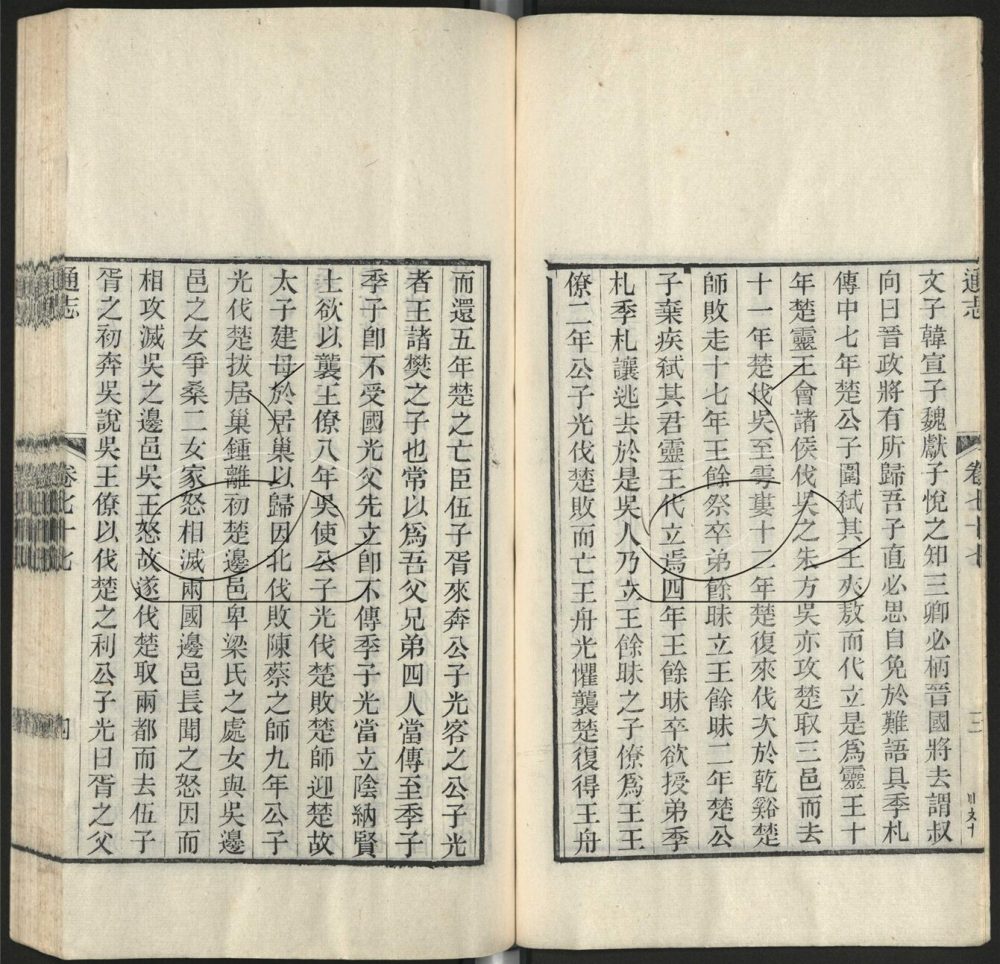 通志
卷七十七
三
文子韓宣子魏獻子悅之知三卿必柄晉國將去謂叔
向曰晉政將有所歸吾子直必思自免於難語具季札
傳中七年楚公子圍弑其王夾敖而代立是爲靈王十
年楚靈王會諸侯伐吳之朱方吳亦攻楚取三邑而去
十一年楚伐吳至雩婁十二年楚復來伐次於乾谿楚
師敗走十七年王餘祭卒弟餘昧立王餘昧二年楚公
子棄疾弑其君靈王代立焉四年王餘昧卒欲授弟季
札季札讓逃去於是吳人乃立王餘昧之子僚爲王王
僚二年公子光伐楚敗而亡王舟光懼襲楚復得王舟
而還五年楚之亡臣伍子胥來奔公子光客之公子光
者王諸樊之子也常以爲吾父兄弟四人當傳至季子
季子卽不受國光父先立卽不傳季子光當立陰納賢
士欲以襲王僚八年吳使公子光伐楚敗楚師迎楚故
太子建母於居巢以歸因北伐敗陳蔡之師九年公子
光伐楚拔居巢鍾離初楚邊邑卑梁氏之處女與吳邊
邑之女爭桑二女家怒相滅兩國邊邑長聞之怒因而
相攻滅吳之邊邑吳王怒故遂伐楚取兩都而去伍子
胥之初奔吳說吳王僚以伐楚之利公子光曰胥之父
通志
卷七十七
四